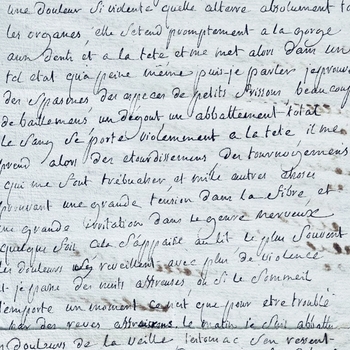 une douleur si violente quelle altere absolument to
les organes elle setend promptement a la gorge
aux dents et a la tete et me met alors dans un
tel etat qu'a peine même puis-je parler j'eprouve
des spasmes des especes de petits frissons beaucoup
de baillemens un degout un abbattement total
le sang se porte violemment a la tete il me
prend alors des etourdissemens des tournoyemens
qui me font trebucher et mile autres choses
prouvant une grande tension dans la fibre et
une grande irritation dans le genre nerveux
quelque fois cela s'appaise au lit le plus souvent
les douleurs se reveillent avec plus de violence
et je passe des nuits affreuses ou si le sommeil
l'emporte un moment ce n'est que pour etre troublé
par des reves le matin je suis abbatu
douleurs de la veille l'estomac s'en ressent